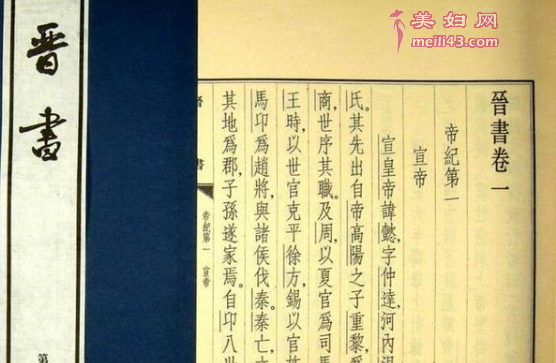 美妇网
meili43.com
晉書卷一
帝紀第一
宣帝
宣皇帝諱懿,字仲達,河內
氏。其先出自帝高陽之子重黎,
商,世序其職。及周,以夏官爲司
王時,以世官克平徐方,錫以官
馬卬爲趙將,與諸侯伐秦。秦亡,
其地爲郡,子孫遂家焉。自卬八世
書
帝紀第一 宣帝
晉書
第